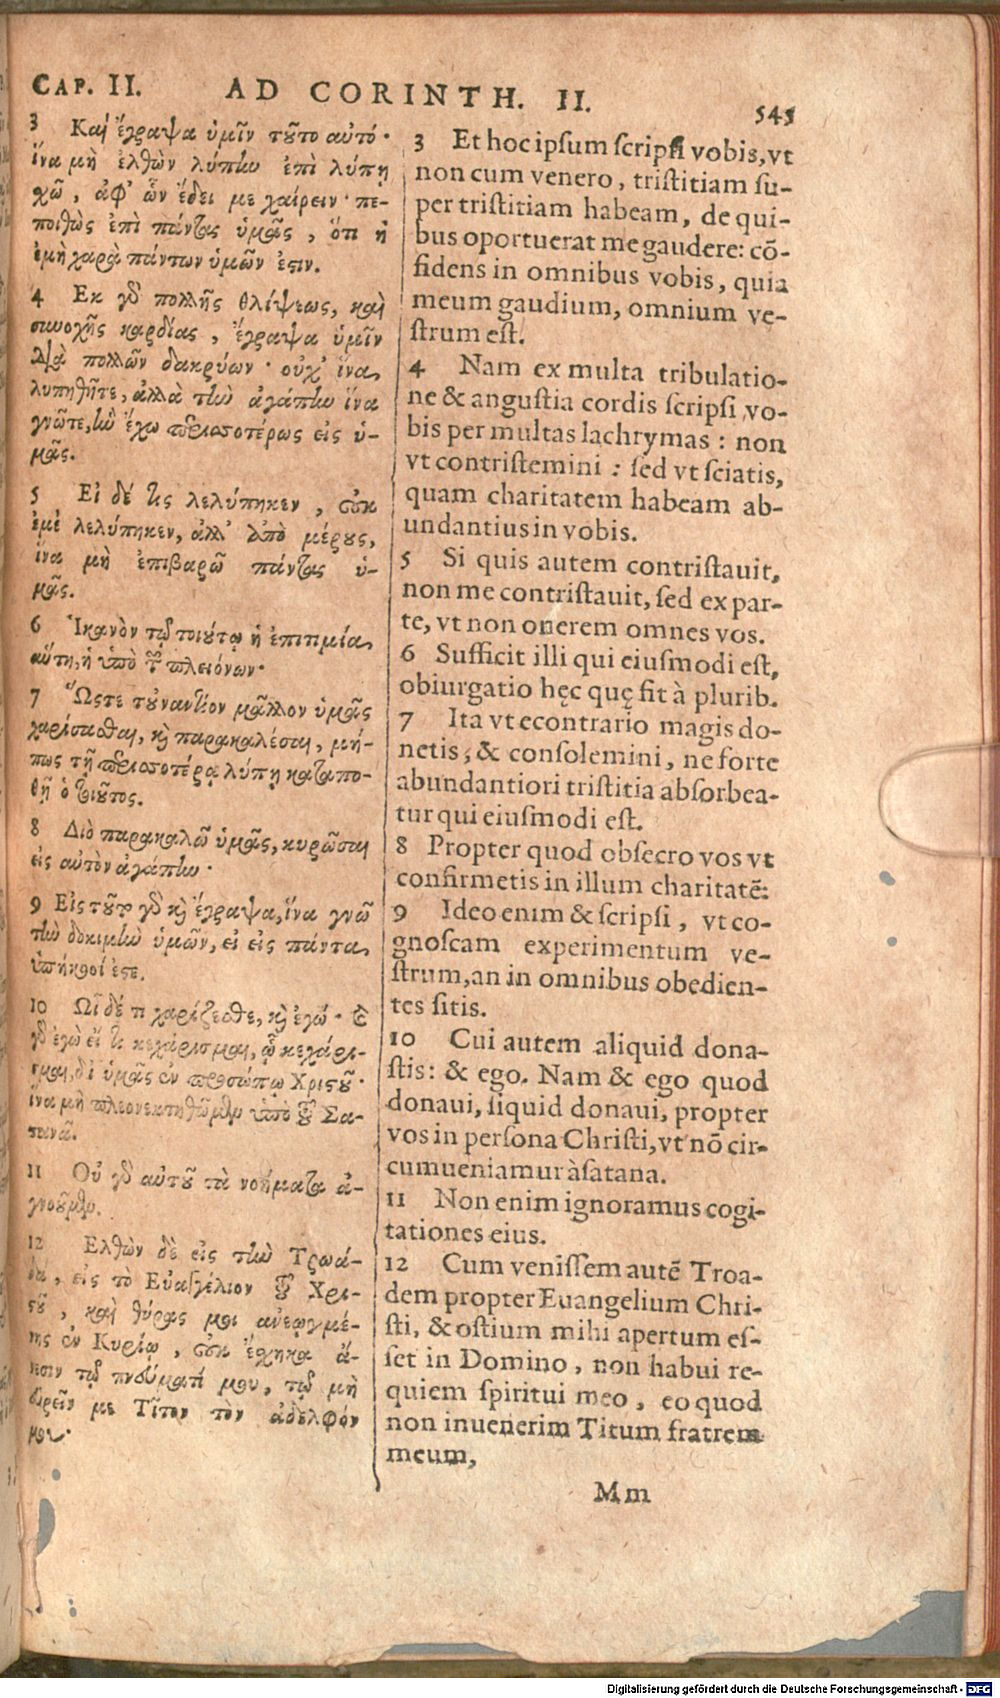 CAP. II. AD CORINTH. II. 545
3 Καὶ ἔγραψα ὑμῖν τȣ͂το αὐτό·
ἵνα μὴ ἐλθὼν λύπην ἐπὶ λύπῃ
χῶ, ἀφ' ὧν ἔδει με χαίρειν· πε-
ποιθὼς ἐπὶ πάντας ὑμᾶς, ὅτι ἡ
ἐμὴ χαρὰ πάντων ὑμῶν ἐστιν.
4 Εκ γὸ πολλῆς θλίψεως, καὶ
συνοχῆς καρδίας, ἔγραψα ὑμῖν
διὰ πολλῶν δακρύων· οὐχ' ἵνα
λυπηθῆτε, ἀλλὰ τὴν ἀγάπην ἵνα
γνῶτε, ἣν ἔχω περισσοτέρως εἰς ὑ-
μᾶς.
5 Εἰ δέ τις λελύπηκεν, οὐκ
ἐμὲ λελύπηκεν, ἀλλ' ἀπὸ μέρȣς,
ἵνα μὴ ἐπιβαρῶ πάντας ὑ-
μᾶς.
6 Ἱκανὸν τῷ τοιȣ́τῳ ἡ ἐπιτιμία
αὕτη, ἡ ὑπὸ τῶν πλειόνων·
7 Ὥστε τȣναντίον μᾶλλον ὑμᾶς
χαρίσασθαι, κὶ παρακαλέσαι, μή-
πως τῇ περισσοτέρᾳ λύπῃ καταπο-
θῇ ὁ τοιȣ͂τος.
8 Διὸ παρακαλῶ ὑμᾶς, κυρῶσαι
εἰς αὐτὸν ἀγάπην·
9 Εἰς τȣ͂το γὸ κὶ ἔγραψα, ἵνα γνῶ
τὴν δοκιμὴν ὑμῶν, εἰ εἰς πάντα
ὑπήκοοί ἐστε.
10 Ωἷ δέ τι χαρίζεσθε, κὶ ἐγώ· καὶ
γὸ ἐγὼ εἴ τι κεχάρισμαι, ᾧ κεχάρι-
σμαι, δι' ὑμᾶς ἐν προσώπῳ Χριστȣ͂·
ἵνα μὴ πλεονεκτηθῶμεν ὑπὸ τȣ͂ Σα-
τανᾶ.
11 Οὐ γὸ αὐτȣ͂ τὰ νοήματα ἀ-
γνοȣ͂μεν.
12 Ελθὼν δὲ εἰς τὴν Τρωά-
δα, εἰς τὸ Εὐαγγέλιον τȣ͂ Χρι-
στȣ͂, καὶ θύρας μοι ἀνεῳγμέ-
νης ἐν Κυρίῳ, οὐκ ἔσχηκα ἄ-
νεσιν τῷ πνεύματί μου, τῷ μὴ
εὑρεῖν με Τῖτον τὸν ἀδελφόν
μου·
3 Et hoc ipsum scripsi vobis, vt
non cum venero, tristitiam su-
per tristitiam habeam, de qui-
bus oportuerat me gaudere: cō-
fidens in omnibus vobis, quia
meum gaudium, omnium ve-
strum est.
4 Nam ex multa tribulatio-
ne & angustia cordis scripsi vo-
bis per multas lachrymas: non
vt contristemini: sed vt sciatis,
quam charitatem habeam ab-
undantius in vobis.
5 Si quis autem contristauit,
non me contristauit, sed ex par-
te, vt non onerem omnes vos.
6 Sufficit illi qui eiusmodi est,
obiurgatio hęc quę fit à plurib.
7 Ita vt econtrario magis do-
netis, & consolemini, ne forte
abundantiori tristitia absorbea-
tur qui eiusmodi est.
8 Propter quod obsecro vos vt
confirmetis in illum charitatē:
9 Ideo enim & scripsi, vt co-
gnoscam experimentum ve-
strum, an in omnibus obedien-
tes sitis.
10 Cui autem aliquid dona-
stis: & ego. Nam & ego quod
donaui, siquid donaui, propter
vos in persona Christi, vt nō cir-
cumueniamur à satana.
11 Non enim ignoramus cogi-
tationes eius.
12 Cum venissem autē Troa-
dem propter Euangelium Chri-
sti, & ostium mihi apertum es-
set in Domino, non habui re-
quiem spiritui meo, eo quod
non inuenerim Titum fratrem
meum,
Mm
Digitalisierung gefördert durch die Deutsche Forschungsgemeinschaft - DFG